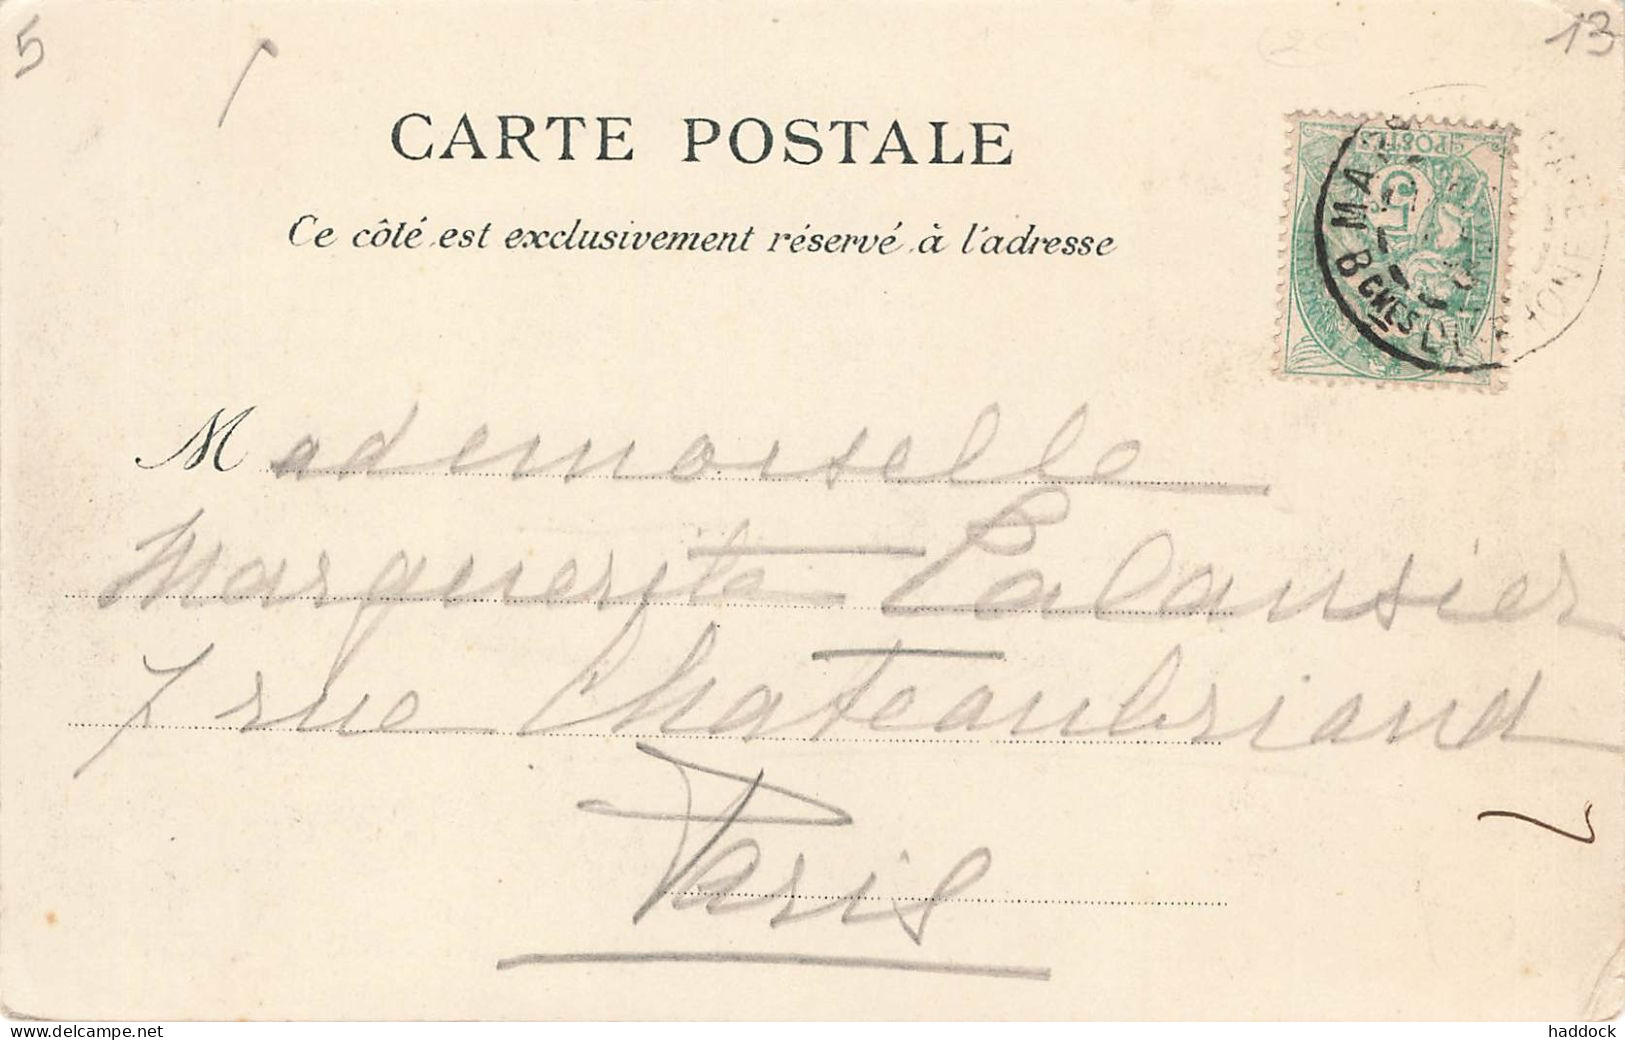 5
13
CARTE POSTALE
Ce côté est exclusivement réservé à l'adresse
POSTES
5
MA
BCHES DU RHONE
Mademoiselle
Marguerite Lalausier
7 rue Chateaubriand
Paris
www.delcampe.net
haddock